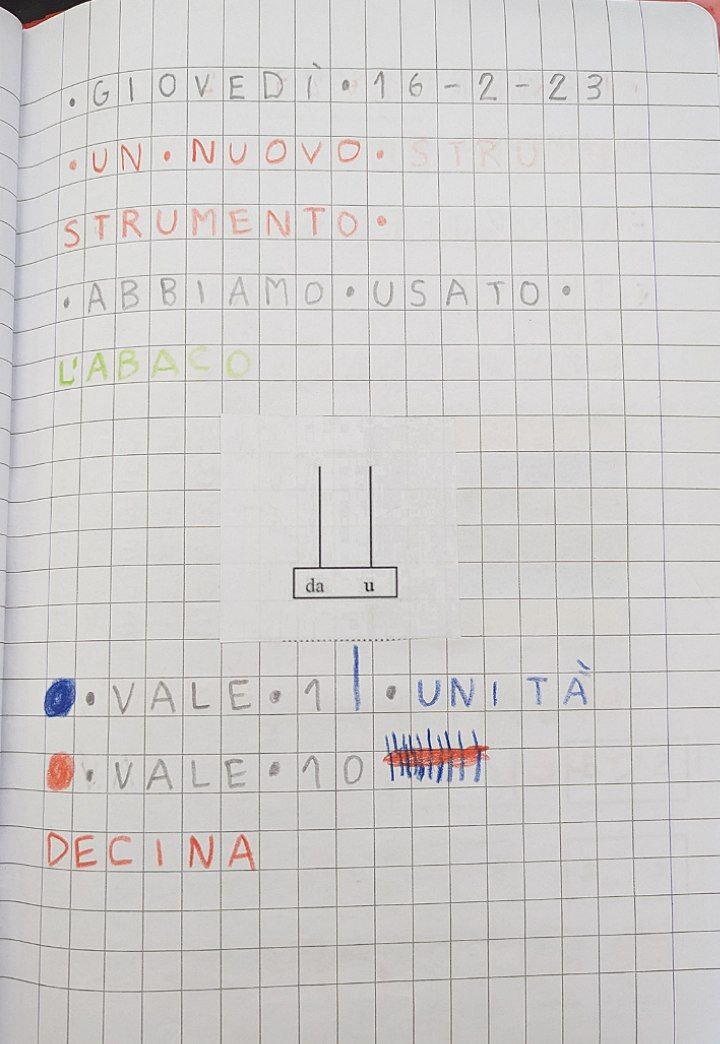 ·GIOVEDÌ·16-2-23
·UN·NUOVO· STRU
STRUMENTO·
·ABBIAMO·USATO·
L'ABACO
da u
·VALE·1 ·UNITÀ
·VALE·10
DECINA